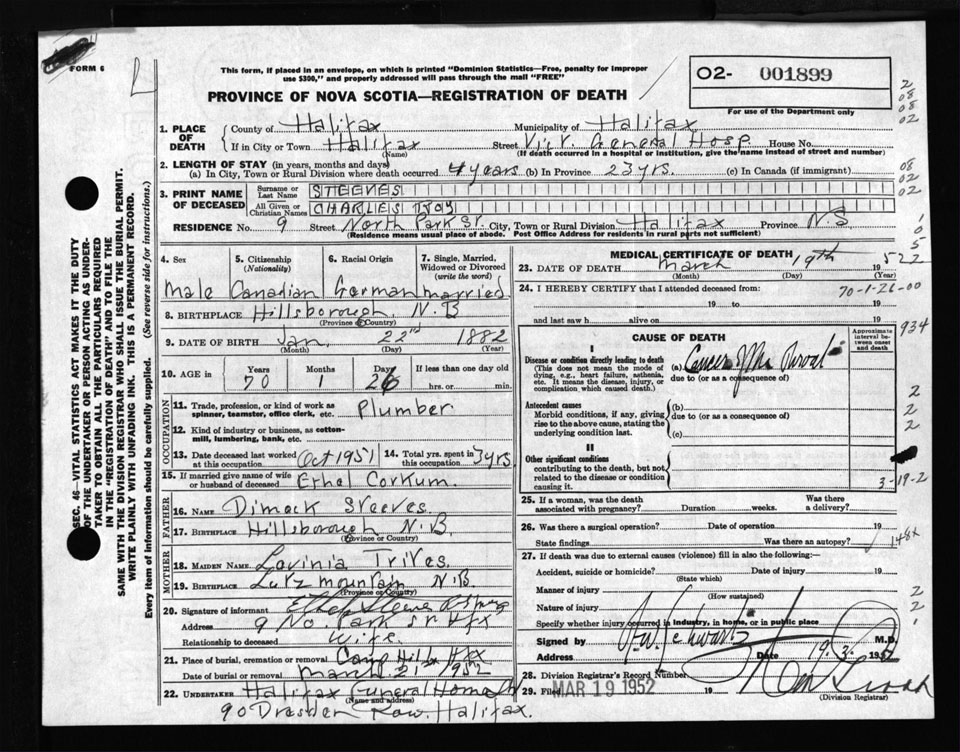 FORM 6
This form, if placed in an envelope, on which is printed "Dominion Statistics—Free, penalty for improper
use $300," and properly addressed will pass through the mail "FREE"
PROVINCE OF NOVA SCOTIA—REGISTRATION OF DEATH
O2- 001899
For use of the Department only
1. PLACE OF DEATH { County of Halifax Municipality of Halifax
If in City or Town Halifax (Name) Street Vict. General Hosp. House No.
(If death occurred in a hospital or institution, give the name instead of street and number)
2. LENGTH OF STAY (in years, months and days)
(a) In City, Town or Rural Division where death occurred 4 years (b) In Province 23 yrs. (c) In Canada (if immigrant)
3. PRINT NAME OF DECEASED { Surname or Last Name STEEVES
All Given or Christian Names CHARLES TROY
RESIDENCE No. 9 Street North Park St. City, Town or Rural Division Halifax Province N.S
(Residence means usual place of abode. Post Office Address for residents in rural parts not sufficient)
4. Sex Male
5. Citizenship (Nationality) Canadian
6. Racial Origin German
7. Single, Married, Widowed or Divorced (write the word) married
8. BIRTHPLACE Hillsborough. N.B
(Province or Country)
9. DATE OF BIRTH Jan. 22nd 1882
(Month) (Day) (Year)
10. AGE Years 70 Months 1 Days 26 If less than one day hrs. or min.
OCCUPATION
11. Trade, profession, or kind of work as spinner, teamster, office clerk, etc. Plumber
12. Kind of industry or business, as cotton-mill, lumbering, bank, etc.
13. Date deceased last worked at this occupation Oct 1951 14. Total yrs. spent in this occupation 3 yrs.
15. If married give name of wife or husband of deceased Ethel Corkum.
FATHER
16. Name Dimock Steeves
17. Birthplace Hillsborough N.B
(Province or Country)
MOTHER
18. MAIDEN NAME Lavinia Trites
19. BIRTHPLACE Lutz mountain N.B.
(Province or Country)
20. Signature of informant Ethel
Address 9 No. Park St Hfx
Relationship to deceased Wife
21. Place of burial, cremation or removal Camp Hill Hfx
Date of burial or removal March 21 1952
22. UNDERTAKER Halifax Funeral Home
(Name and address)
90 Dresden Row. Halifax.
MEDICAL CERTIFICATE OF DEATH
23. DATE OF DEATH March 19th 1952
(Month) (Day) (Year)
24. I HEREBY CERTIFY that I attended deceased from:
19 to 19
and last saw h alive on 19
CAUSE OF DEATH
Approximate interval between onset and death
I
Disease or condition directly leading to death
(This does not mean the mode of dying, e.g., heart failure, asthenia, etc. It means the disease, injury, or complication which caused death.)
(a)
due to (or as a consequence of)
Antecedent causes
Morbid conditions, if any, giving rise to the above cause, stating the underlying condition last.
(b)
due to (or as a consequence of)
(c)
II
Other significant conditions
contributing to the death, but not related to the disease or condition causing it.
25. If a woman, was the death associated with pregnancy? Duration weeks. Was there a delivery?
26. Was there a surgical operation? Date of operation 19
State findings Was there an autopsy?
27. If death was due to external causes (violence) fill in also the following:—
Accident, suicide or homicide? Date of injury 19
(State which)
Manner of injury
(How sustained)
Nature of injury
Specify whether injury occurred in industry, in home, or in public place
Signed by M.D.
Address Date 19.3.1952
28. Division Registrar's Record Number
29. Filed MAR 19 1952 19
(Division Registrar)
70-1-26-00
934
3-19-2
148x
SEC. 46—VITAL STATISTICS ACT MAKES IT THE DUTY
OF THE UNDERTAKER OR PERSON ACTING AS UNDER-
TAKER TO OBTAIN ALL THE PARTICULARS REQUIRED
IN THE "REGISTRATION OF DEATH" AND TO FILE THE
SAME WITH THE DIVISION REGISTRAR WHO SHALL ISSUE THE BURIAL PERMIT.
WRITE PLAINLY WITH UNFADING INK. THIS IS A PERMANENT RECORD.
Every item of information should be carefully supplied. (See reverse side for instructions.)